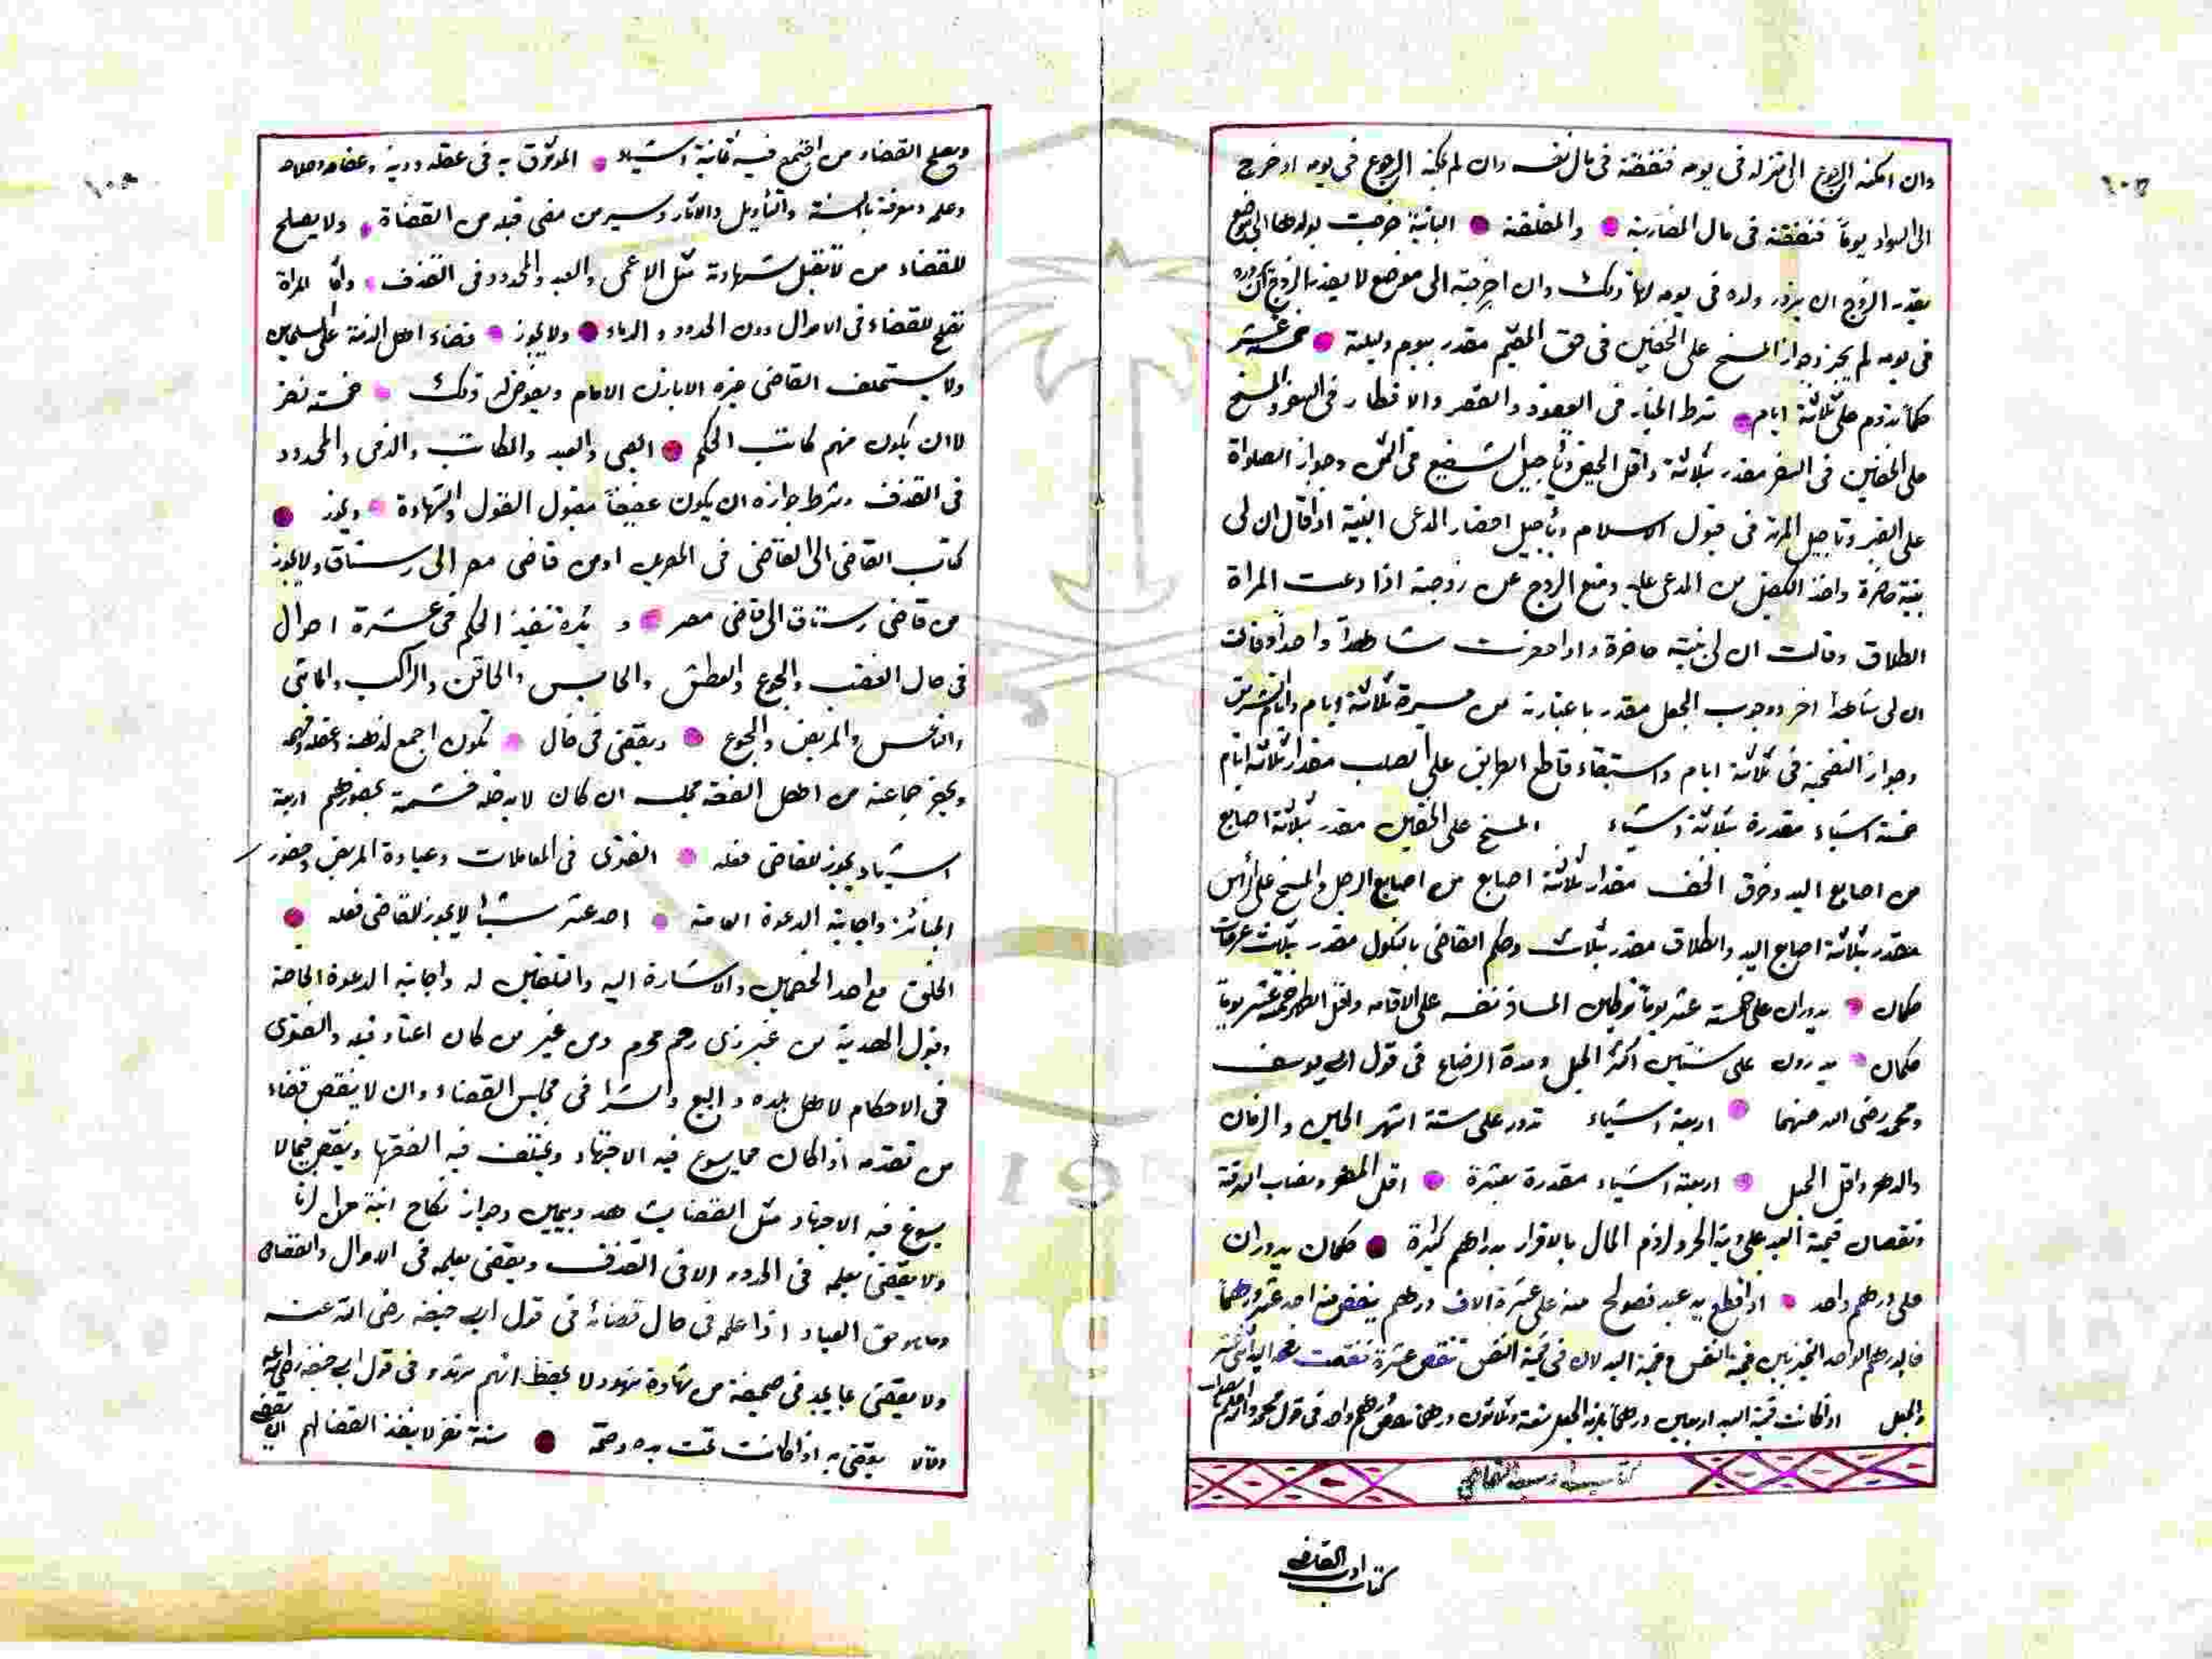 وان امكنه الرجوع الى منزله فى يومه فنفقته فى مال نفسه وان لم يمكنه الرجوع فى يومه او خرج
الى السواد يوماً فنفقته فى مال المضاربة والمطلقة البائنة خرجت بولدها الى موضع
يقدر الزوج ان يزور ولده فى يومه لها ذلك وان اخرجته الى موضع لا يقدر الزوج ان يزوره
فى يومه لم يجز وجواز المسح على الخفين فى حق المقيم مقدر بيوم وليلة خمسة عشر
حكماً تدوم على ثلاثة ايام شرط الخيار فى العقود والقصر والافطار فى السفر والمسح
على الخفين فى السفر مقدر بثلاثة واقل الحيض وتأجيل الشفيع فى الثمن وجواز الصلواة
على القبر وتاجيل المرتد فى قبول الاسلام وتأجيل احضار المدعى البينة اذا قال ان لى
بينة حاضرة واخذ الكفيل من المدعى عليه ومنع الزوج عن زوجته اذا ادعت المراة
الطلاق وقالت ان لى بينة حاضرة واذا احضرت شاهداً واحداً وقالت
ان لى شاهداً اخر ووجوب الجعل مقدر باعتباره من مسيرة ثلاثة ايام وايام التشريق
وجواز التضحية فى ثلاثة ايام واستبقاء قاطع الطريق على الصلب مقدار ثلاثة ايام
خمسة اشياء مقدرة بثلاثة اشياء المسح على الخفين مقدر بثلاثة اصابع
من اصابع اليد وخرق الخف مقدار ثلاثة اصابع من اصابع الرجل والمسح على الرأس
مقدر بثلاثة اصابع اليد والطلاق مقدر بثلاث وحكم القاضى بالنكول مقدر بثلاث عرضات
حكمان يدوران على خمسة عشر يوماً توطين المسافر نفسه على الاقامه واقل الطهر خمسة عشر يوماً
حكمان يدورون على سنتين اكثر الحبل ومدة الرضاع فى قول ابى يوسف
ومحمد رضى الله عنهما اربعة اشياء تدور على ستة اشهر الحين والزمان
والدهر واقل الحبل اربعة اشياء مقدرة بعشرة اقل المهر ونصاب السرقة
ونقصان قيمة العبد على دية الحر ولزوم المال بالاقرار بدراهم كثيرة حكمان يدوران
على درهم واحد اذا قطع يد عبد فصولح منه على عشرة الاف درهم ينقص منه احد عشر درهماً
والجعل اذا كانت قيمة العبد اربعين درهماً يلزمه الجعل تسعة وثلاثون درهماً
كتاب ادب القاضى
ويصلح القضاء من اجتمع فيه ثمانية اشياء الموثوق به فى عقله ودينه وعفافه وصلاحه
وعلمه ومعرفة بالسنة والتأويل والاثار وسير من مضى قبله من القضاة ولا يصلح
للقضاء من لا تقبل شهادته مثل الاعمى والعبد والمحدود فى القذف واما المراة
تصلح للقضاء فى الاموال دون الحدود والدماء ولا يجوز قضاء اهل الذمة على المسلمين
ولا يستخلف القاضى غيره الا باذن الامام ويفوض له ذلك خمسة نفر
لا ان يكون منهم كاتب الحكم الصبى والعبد والمكاتب والذمى والمحدود
فى القذف وشرط جوازه ان يكون عفيفاً مقبول القول والشهادة ويجوز
كتاب القاضى الى القاضى فى المصرين او من قاضى مصر الى رستاق ولا يجوز
من قاضى رستاق الى قاضى مصر و يكره تنفيذ الحكم فى عشرة احوال
فى حال الغضب والجوع والعطش والحابس والحاقن والراكب والماشى
والناعس والمريض والجوع ويقضى فى حال تكون اجمع لذهنه وعقله وفهمه
ويحضر جماعته من اهل الفقه مجلسه ان كان لا يدخله حشمة بحضورهم اربعة
اشياء يجوز للقاضى فعله الفتوى فى المعاملات وعيادة المريض وحضور
الجنائز واجابة الدعوة العامة احد عشر شيئا لا يجوز للقاضى فعله
الخلوة مع احد الخصمين والاشارة اليه والتلقين له واجابة الدعوة الخاصة
وقبول الهدية من غير ذى رحم محرم ومن غير من كان اعتاد قبله والفتوى
فى الاحكام لاهل بلده والبيع والشرا فى مجلس القضاء وان لا ينقض قضاء
من تقدمه اذا كان مما يسوع فيه الاجتهاد ويختلف فيه الفقها وينقض فيما لا
يسوغ فيه الاجتهاد مثل القضا بشاهد ويمين وجواز نكاح ابنة من الزنا
ولا يقضى بعلمه فى الحدود الا فى القذف ويقضى بعلمه فى الاموال والقصاص
وما هو حق العباد اذا علمه فى حال قضائه فى قول ابى حنيفه رضى الله عنه
ولا يقضى بما يجد فى صحيفة من شهادة شهود لا يحفظ انهم شهدو فى قول ابى حنيفه رضى الله عنه
وقالا يقضى به اذا كانت تحت يده وختمه ستة نفر لا ينفذ القضا لهم
كتاب ادب القاضى